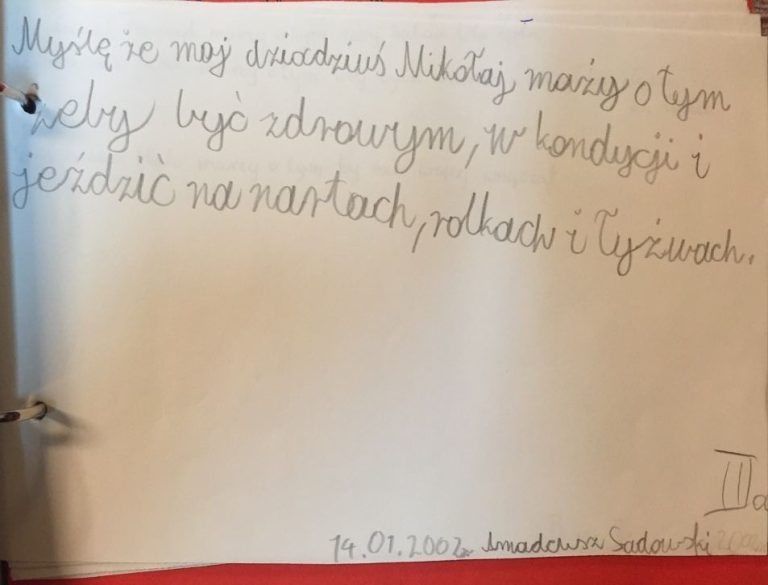 Myślę że moj dziadziuś Mikołaj maży o tym
żeby być zdrowym, w kondycji i
jeździć na nartach, rolkach i łyżwach.
IIIa
14.01.2002r Amadeusz Sadowski